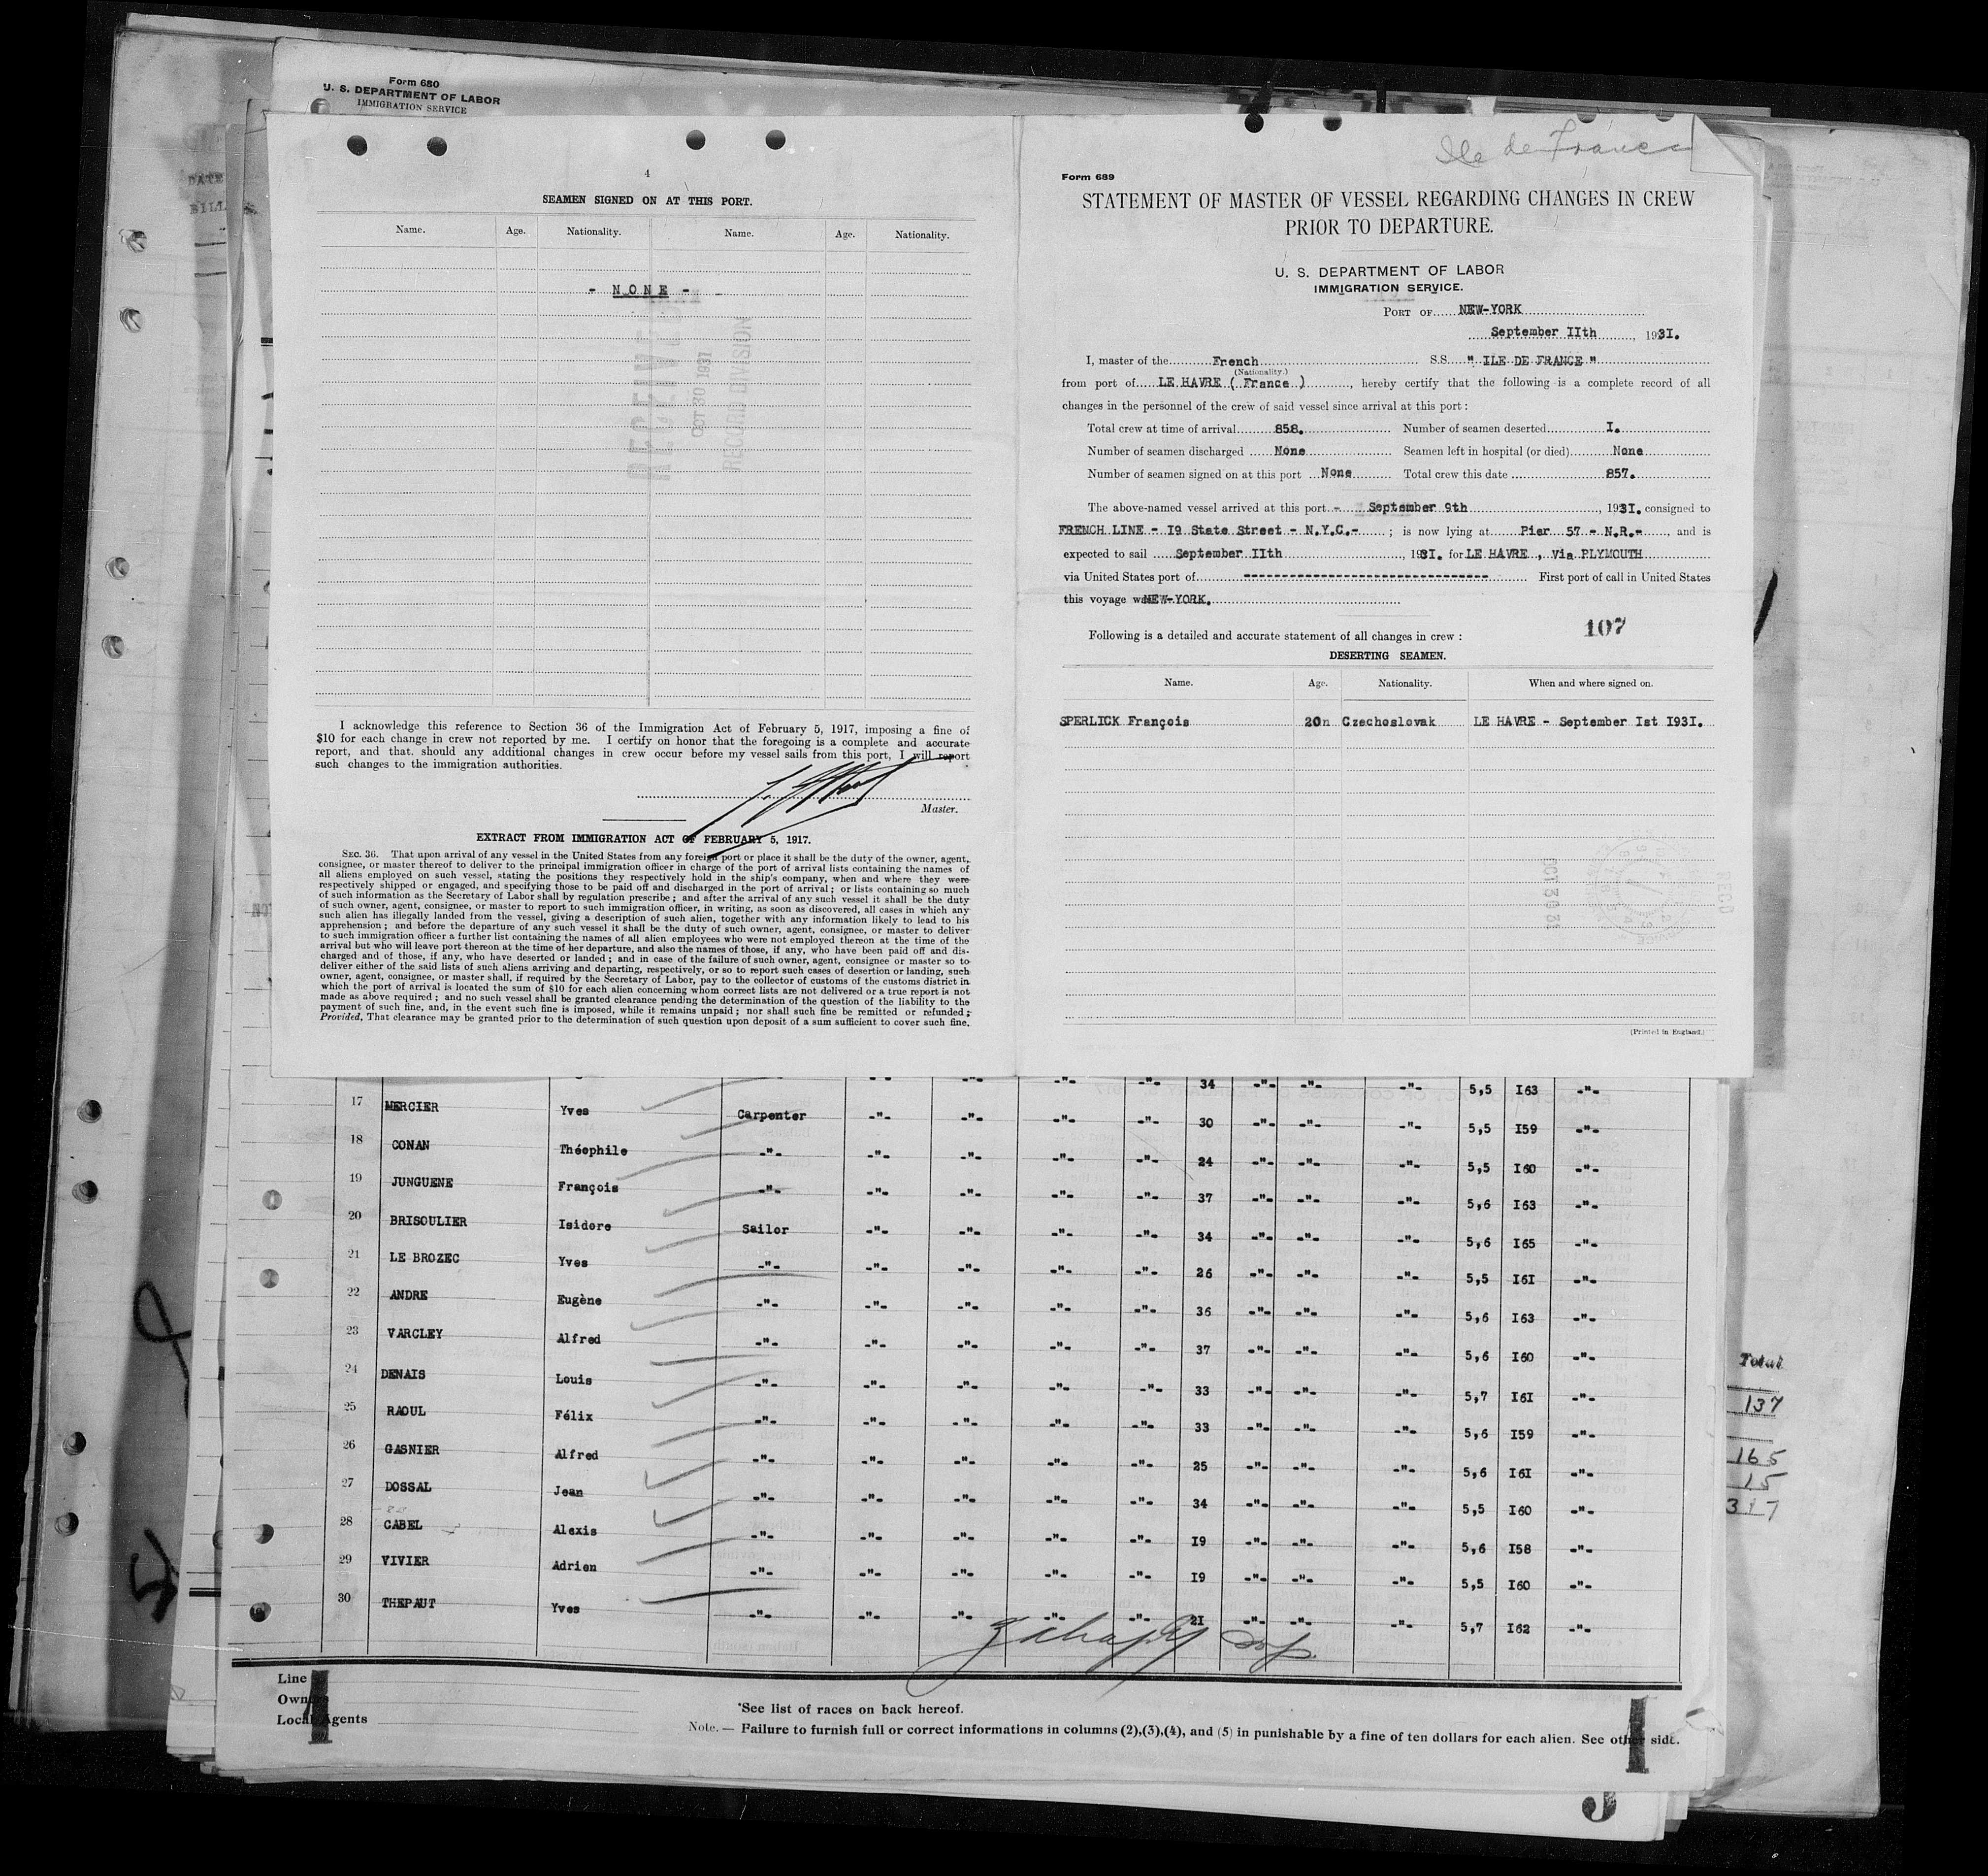 Form 680
U. S. DEPARTMENT OF LABOR
IMMIGRATION SERVICE
4
SEAMEN SIGNED ON AT THIS PORT.
Name. Age. Nationality. Name. Age. Nationality.
- NONE -
RECEIVED
OCT 30 1931
RECORD DIVISION
I acknowledge this reference to Section 36 of the Immigration Act of February 5, 1917, imposing a fine of
$10 for each change in crew not reported by me. I certify on honor that the foregoing is a complete and accurate
report, and that should any additional changes in crew occur before my vessel sails from this port, I will report
such changes to the immigration authorities.
Master.
EXTRACT FROM IMMIGRATION ACT OF FEBRUARY 5, 1917.
SEC. 36. That upon arrival of any vessel in the United States from any foreign port or place it shall be the duty of the owner, agent,
consignee, or master thereof to deliver to the principal immigration officer in charge of the port of arrival lists containing the names of
all aliens employed on such vessel, stating the positions they respectively hold in the ship's company, when and where they were
respectively shipped or engaged, and specifying those to be paid off and discharged in the port of arrival; or lists containing so much
of such information as the Secretary of Labor shall by regulation prescribe; and after the arrival of any such vessel it shall be the duty
of such owner, agent, consignee, or master to report to such immigration officer, in writing, as soon as discovered, all cases in which any
such alien has illegally landed from the vessel, giving a description of such alien, together with any information likely to lead to his
apprehension; and before the departure of any such vessel it shall be the duty of such owner, agent, consignee, or master to deliver
to such immigration officer a further list containing the names of all alien employees who were not employed thereon at the time of the
arrival but who will leave port thereon at the time of her departure, and also the names of those, if any, who have been paid off and dis-
charged and of those, if any, who have deserted or landed; and in case of the failure of such owner, agent, consignee or master so to
deliver either of the said lists of such aliens arriving and departing, respectively, or so to report such cases of desertion or landing, such
owner, agent, consignee, or master shall, if required by the Secretary of Labor, pay to the collector of customs of the customs district in
which the port of arrival is located the sum of $10 for each alien concerning whom correct lists are not delivered or a true report is not
made as above required; and no such vessel shall be granted clearance pending the determination of the question of the liability to the
payment of such fine, and, in the event such fine is imposed, while it remains unpaid; nor shall such fine be remitted or refunded;
Provided, That clearance may be granted prior to the determination of such question upon deposit of a sum sufficient to cover such fine.
Ile de France
Form 689
STATEMENT OF MASTER OF VESSEL REGARDING CHANGES IN CREW
PRIOR TO DEPARTURE.
U. S. DEPARTMENT OF LABOR
IMMIGRATION SERVICE.
PORT OF NEW-YORK
September IIth, 193I.
I, master of the French S.S. " ILE DE FRANCE "
(Nationality.)
from port of LE HAVRE ( France ), hereby certify that the following is a complete record of all
changes in the personnel of the crew of said vessel since arrival at this port:
Total crew at time of arrival 858. Number of seamen deserted I.
Number of seamen discharged None Seamen left in hospital (or died) None
Number of seamen signed on at this port None Total crew this date 857.
The above-named vessel arrived at this port - September 9th, 193I. consigned to
FRENCH LINE - I9 State Street - N.Y.C.- ; is now lying at Pier 57 - N.R.- and is
expected to sail September IIth, 193I. for LE HAVRE , Via PLYMOUTH
via United States port of -------------------------------- First port of call in United States
this voyage was NEW-YORK.
107
Following is a detailed and accurate statement of all changes in crew:
DESERTING SEAMEN.
Name. Age. Nationality. When and where signed on.
SPERLICK François 20n Czechoslovak LE HAVRE - September Ist I93I.
OCT 30 31
(Printed in England.)
-"- -"- -"- -"- 34 -"- -"- -"- 5,5 I63 -"-
17 MERCIER Yves Carpenter -"- -"- -"- -"- 30 -"- -"- -"- 5,5 I59 -"-
18 CONAN Théophile -"- -"- -"- -"- -"- 24 -"- -"- -"- 5,5 I60 -"-
19 JUNGUENE François -"- -"- -"- -"- -"- 37 -"- -"- -"- 5,6 I63 -"-
20 BRISOULIER Isidore Sailor -"- -"- -"- -"- 34 -"- -"- -"- 5,6 I65 -"-
21 LE BROZEC Yves -"- -"- -"- -"- -"- 26 -"- -"- -"- 5,5 I6I -"-
22 ANDRE Eugène -"- -"- -"- -"- -"- 36 -"- -"- -"- 5,6 I63 -"-
23 VARCLEY Alfred -"- -"- -"- -"- -"- 37 -"- -"- -"- 5,6 I60 -"-
24 DENAIS Louis -"- -"- -"- -"- -"- 33 -"- -"- -"- 5,7 I6I -"-
25 RAOUL Félix -"- -"- -"- -"- -"- 33 -"- -"- -"- 5,6 I59 -"-
26 GASNIER Alfred -"- -"- -"- -"- -"- 25 -"- -"- -"- 5,6 I6I -"-
27 DOSSAL Jean -"- -"- -"- -"- -"- 34 -"- -"- -"- 5,5 I60 -"-
28 CABEL Alexis -"- -"- -"- -"- -"- I9 -"- -"- -"- 5,6 I58 -"-
29 VIVIER Adrien -"- -"- -"- -"- -"- I9 -"- -"- -"- 5,5 I60 -"-
30 THEPAUT Yves -"- -"- -"- -"- -"- 2I -"- -"- -"- 5,7 I62 -"-
Line
Owners
Local Agents
*See list of races on back hereof.
Note. — Failure to furnish full or correct informations in columns (2),(3),(4), and (5) in punishable by a fine of ten dollars for each alien. See other side.
1
1
Total
137
165
15
317